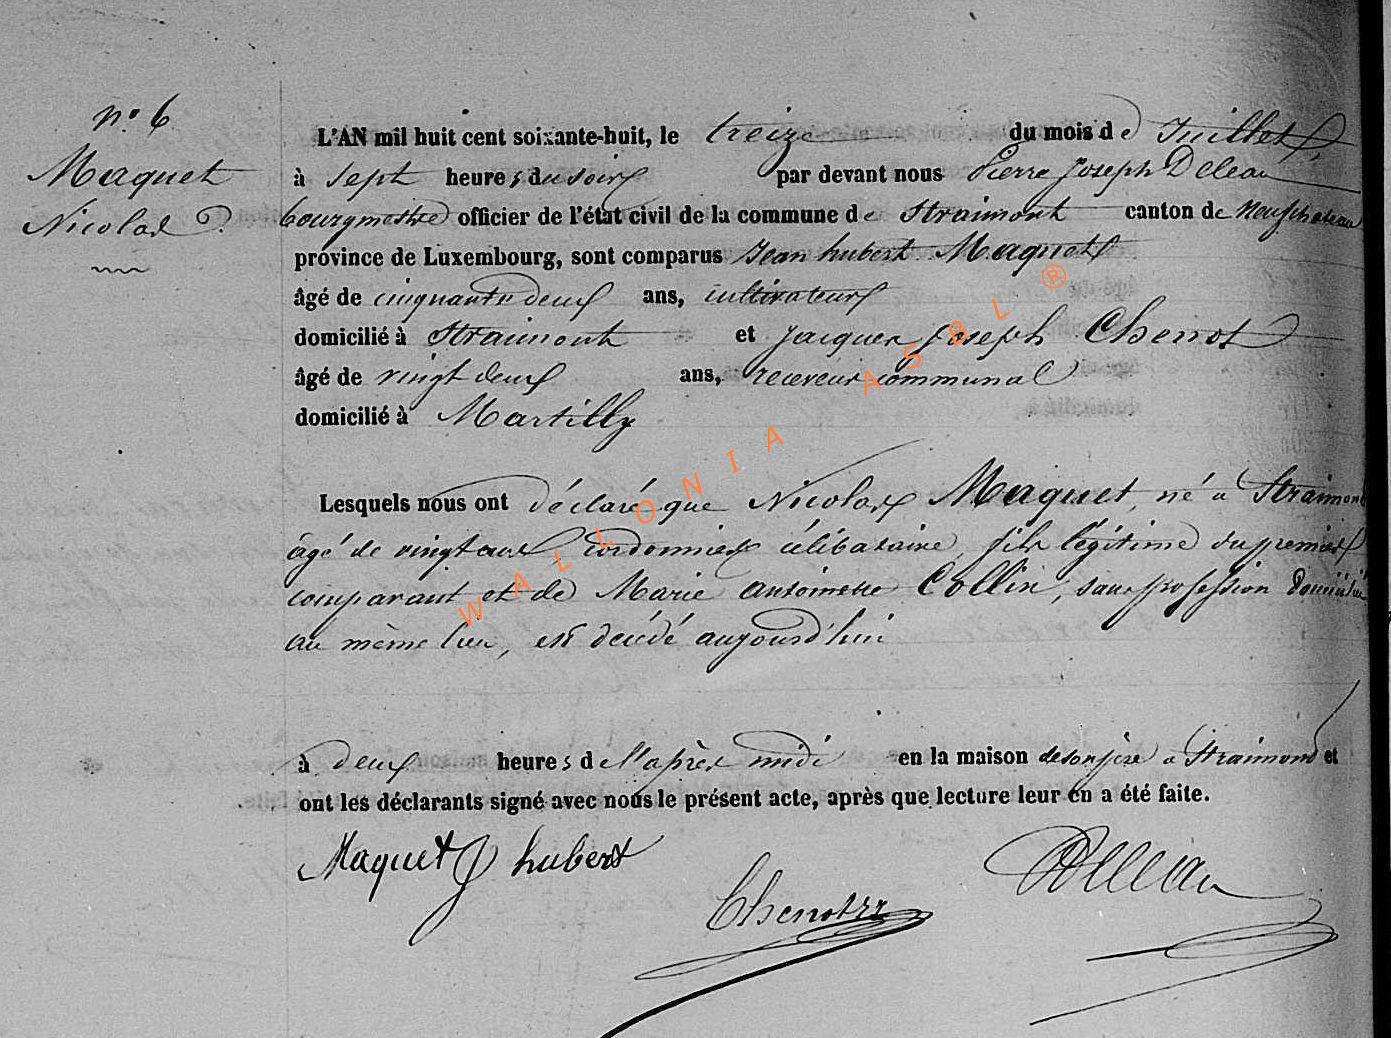 n° 6
Maquet
Nicolas
L'AN mil huit cent soixante-huit, le treize du mois de Juillet,
à sept heures du soir par devant nous Pierre Joseph Deleau
bourgmestre officier de l'état civil de la commune de Straimont canton de Neufchateau
province de Luxembourg, sont comparus Jean hubert Maquet
âgé de cinquante deux ans, cultivateur
domicilié à Straimont et Jacques Joseph Chenot
âgé de vingt deux ans, receveur communal
domicilié à Martilly
Lesquels nous ont déclaré que Nicolas Maquet, né à Straimont
âgé de vingt ans cordonnier célibataire, fils légitime du premier
comparant et de Marie antoinette Collin, sans profession domicilié
au même lieu, est décédé aujourd'hui
à deux heures de l'après midi en la maison de son père à Straimont et
ont les déclarants signé avec nous le présent acte, après que lecture leur en a été faite.
Maquet J hubert
Chenot
Deleau
WALLONIA ASBL ®